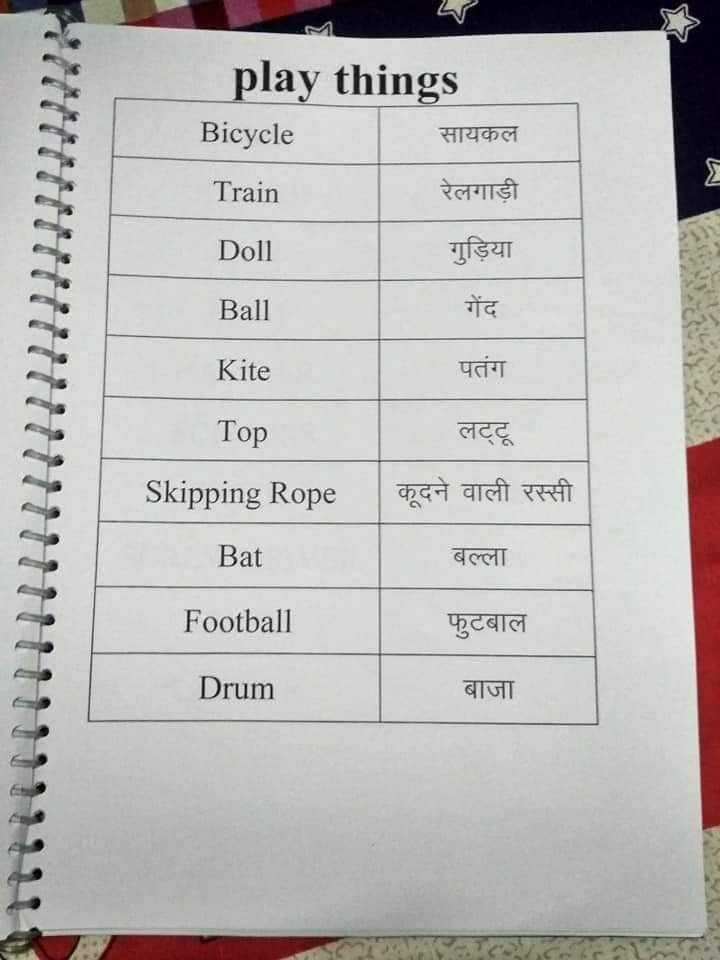 play things
Bicycle सायकल
Train रेलगाड़ी
Doll गुड़िया
Ball गेंद
Kite पतंग
Top लट्टू
Skipping Rope कूदने वाली रस्सी
Bat बल्ला
Football फुटबाल
Drum बाजा